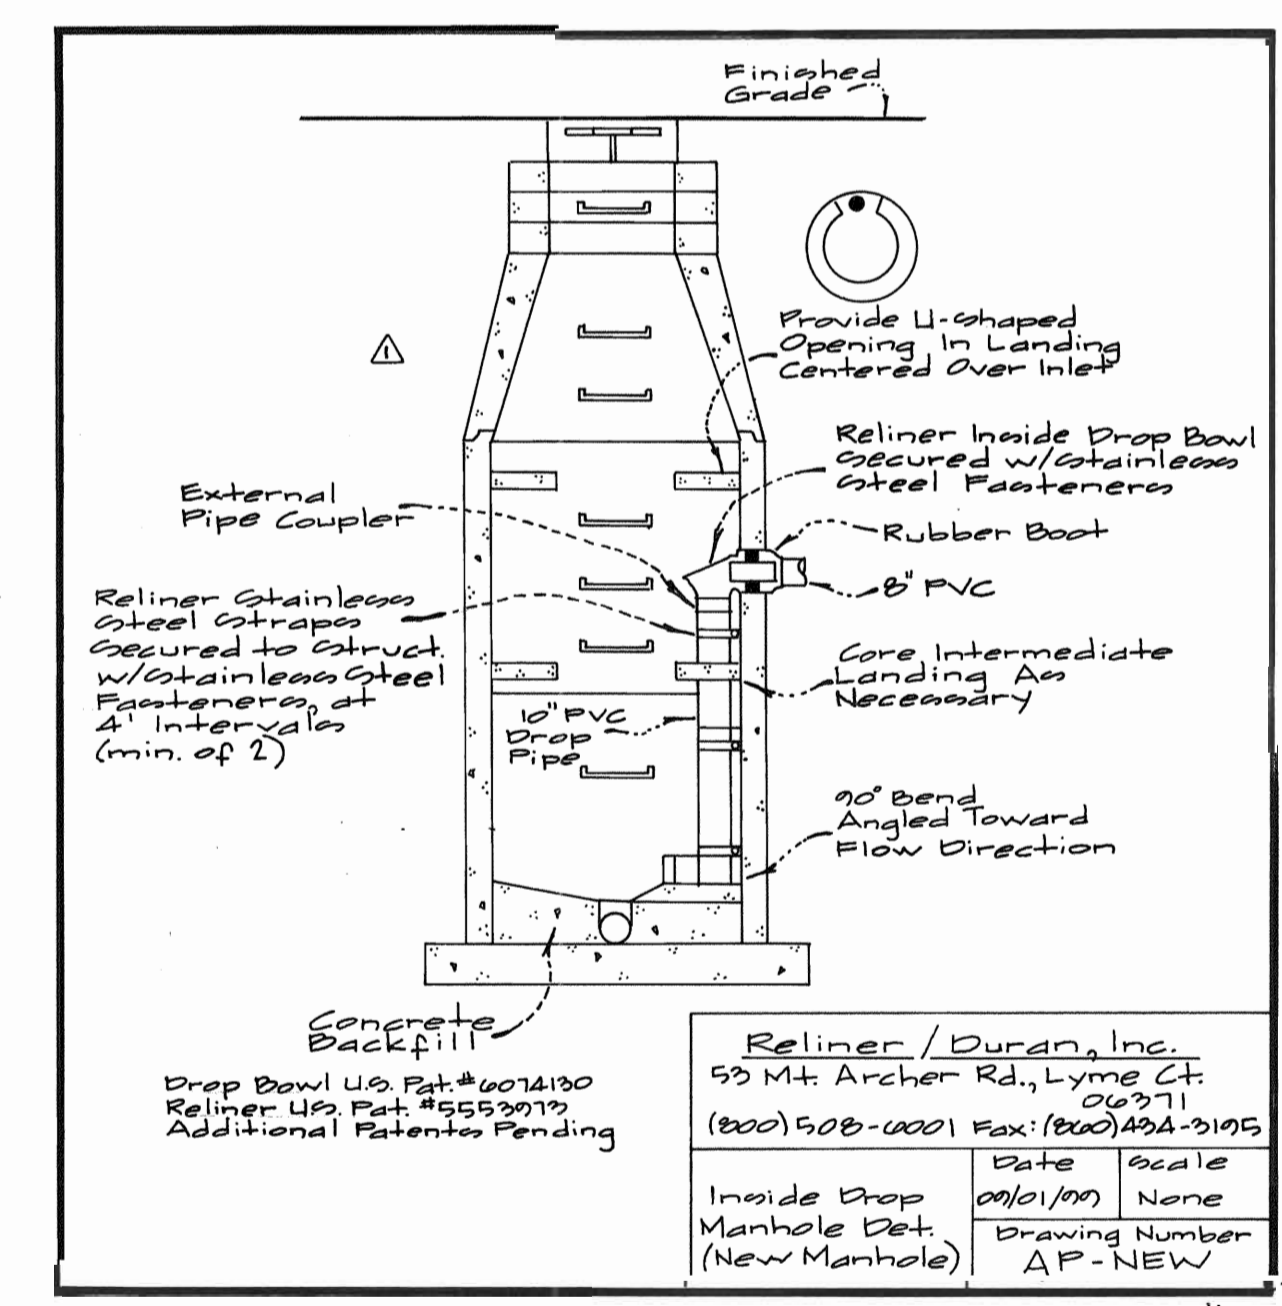 Finished
Grade
1
Provide U-shaped
Opening In Landing
Centered Over Inlet
Reliner Inside Drop Bowl
Secured w/Stainless
Steel Fasteners
External
Pipe Coupler
Rubber Boot
8" PVC
Reliner Stainless
Steel Straps
Secured to Struct.
w/Stainless Steel
Fasteners, at
4' Intervals
(min. of 2)
Core Intermediate
Landing As
Necessary
10" PVC
Drop
Pipe
90° Bend
Angled Toward
Flow Direction
Concrete
Backfill
Drop Bowl U.S. Pat.#6074130
Reliner U.S. Pat. #5553973
Additional Patents Pending
Reliner / Duran, Inc.
53 Mt. Archer Rd., Lyme Ct.
06371
(800) 508-6001 Fax: (860) 434-3195
Inside Drop
Manhole Det.
(New Manhole)
Date
09/01/99
Scale
None
Drawing Number
AP-NEW